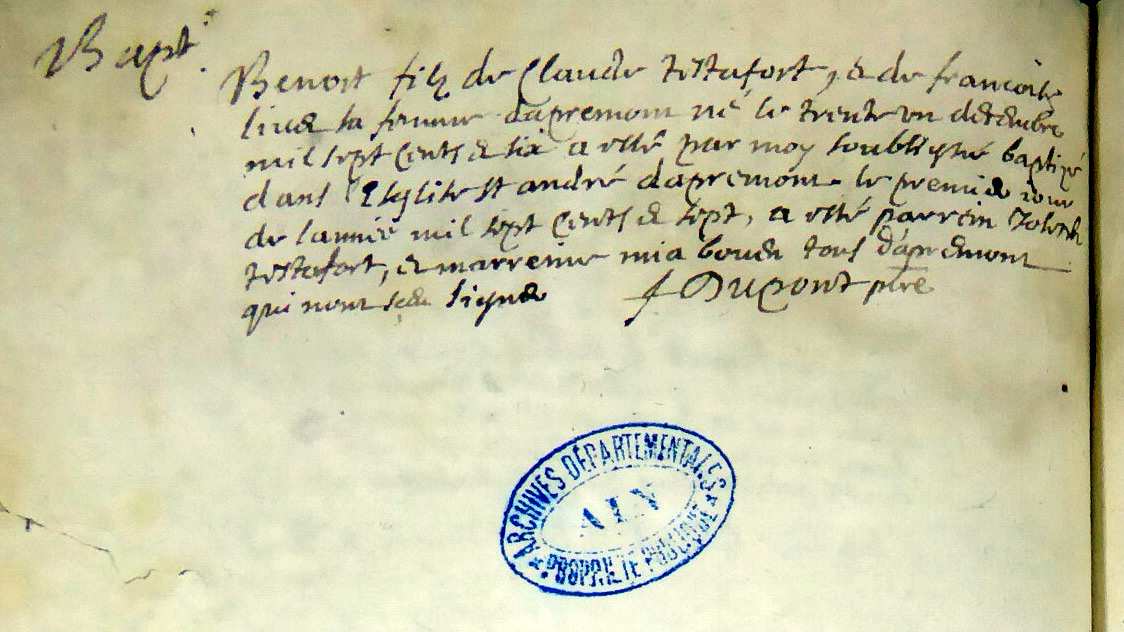 Bapt.
Benoit filz de Claude testafort, & de francoise
sa femme dapremont né le trente un decembre
mil sept cents & six a esté par moy soubsigné baptizé
dans l'Esglise st andré dapremont le premier jour
de lannée mil sept cents & sept, a esté parrein Joseph
testafort, & marreine mia bouer tous d'apremont
qui n'ont sceu signer J Dupont ptre
ARCHIVES DÉPARTEMENTALES
AIN
PROPRIÉTÉ PUBLIQUE